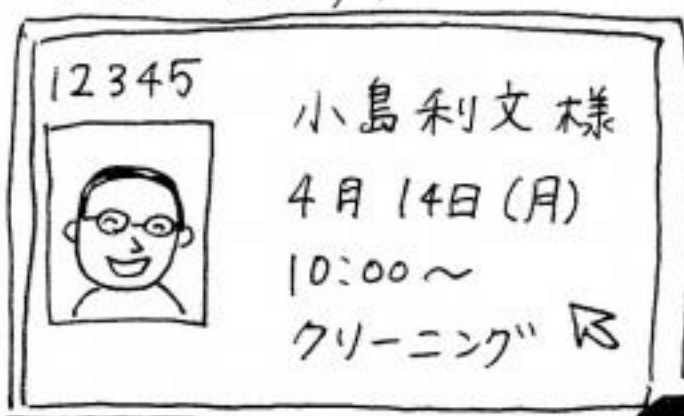 12345
小島利文様
4月14日(月)
10:00～
クリーニング